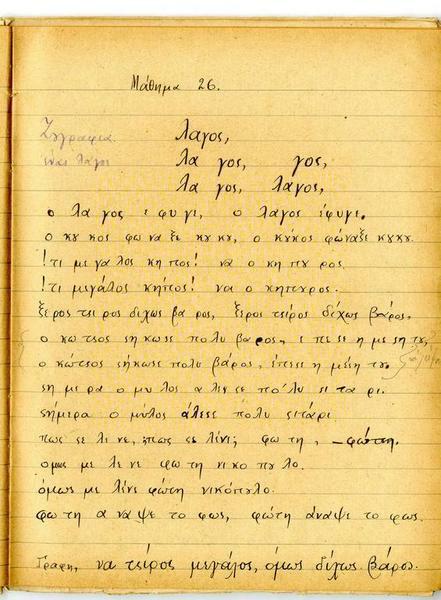 Μάθημα 26.
Ζωγραφιά λαγος,
ένας λαγός λα γος, γος,
λα γος, λαγος,
ο λα γος ε φυ γε, ο λαγος έφυγε.
ο κυ κος φω να ξε κυ κυ, ο κύκος φώναξε κυκυ.
!τι με γα λος κη πος! να ο κη πυ ρος.
!τι μεγάλος κήπος! να ο κηπυρος.
ξερος τει ρος διχως βα ρος, ξερος τείρος δίχως βάρος,
ο κω τσος ση κω σε πο λυ βα ρος, ε πε σε η με ση τυ,
ο κώτσος σήκωσε πολυ βάρος, έπεσε η μέση τυ
ση με ρα ο μυ λος α λε σε πο λυ σι τα ρι.
σήμερα ο μύλος άλεσε πολυ σιτάρι
πως σε λε νε, πως σε λένε; φω τη, – φώτη.
ομως με λε νε φω τη νι κο πυ λο.
όμως με λένε φώτη νικόπυλο.
φω τη α να ψε το φως, φώτη άναψε το φως.
Γραφη, να τείρος μεγάλος, όμως δίχως βάρος.